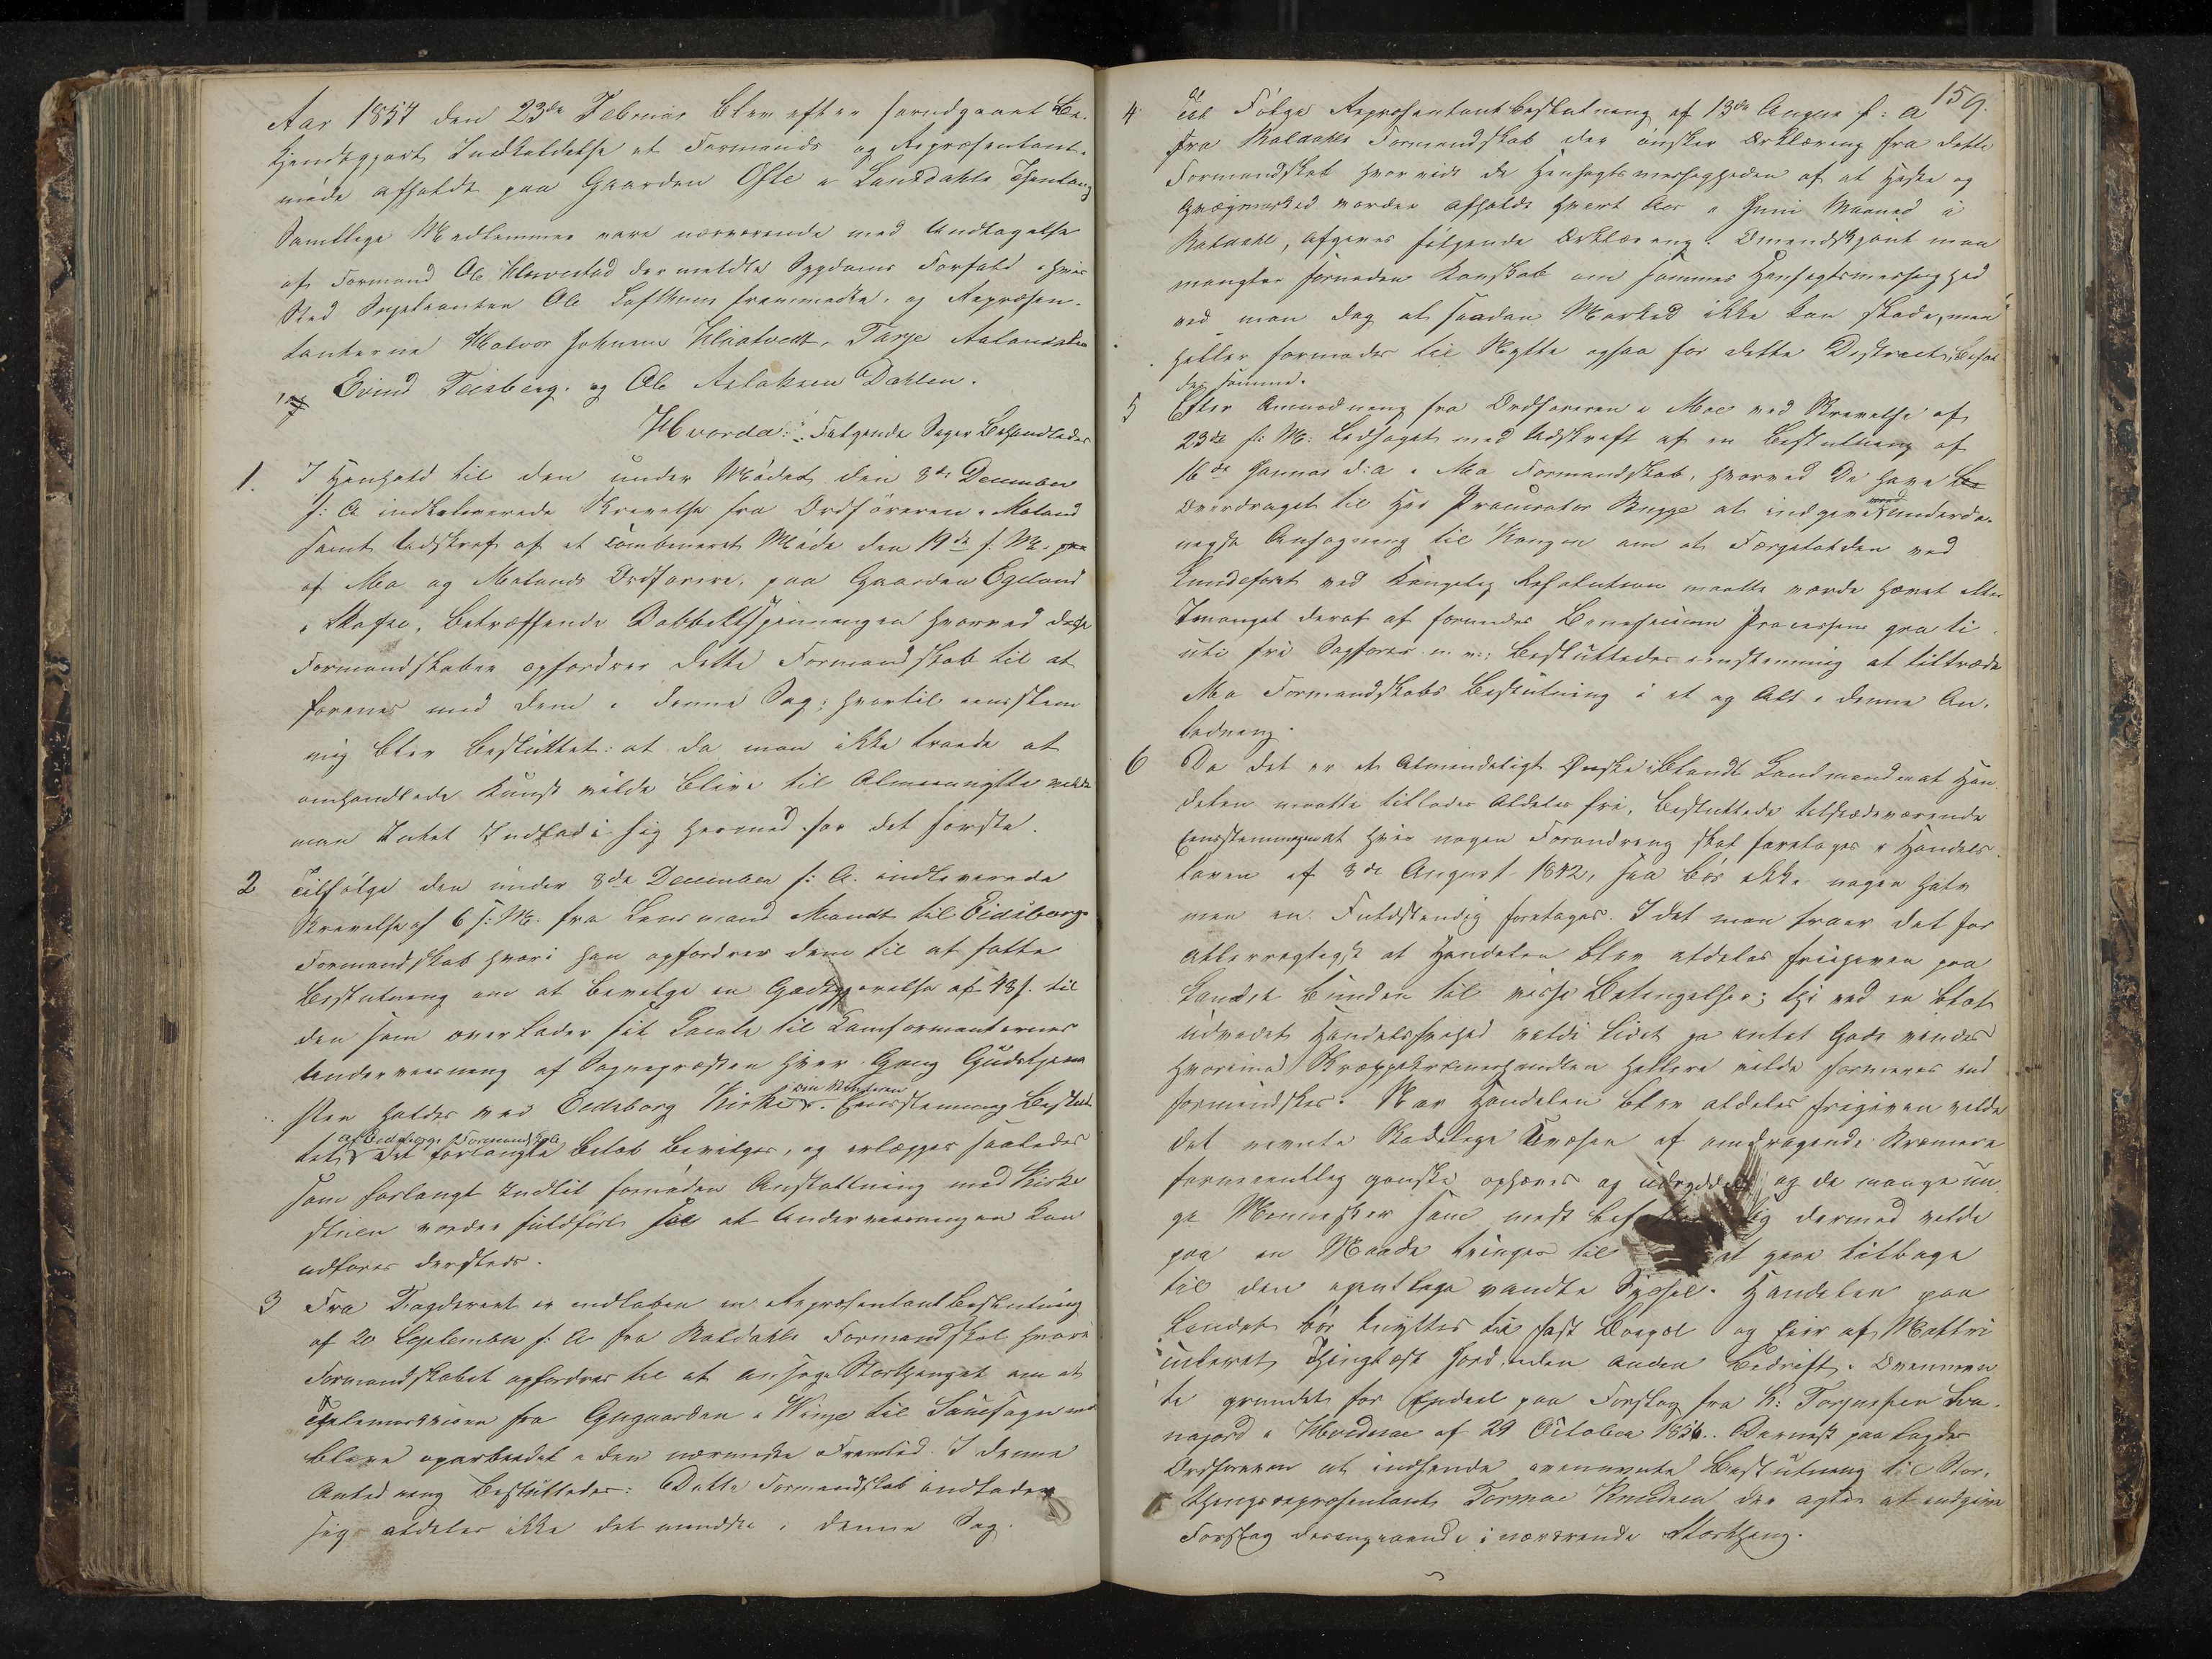 Aar 1857 den 23de Februar blev efter forudgaaet Be-
kjendtgjort Indkaldelse et Formands og Repræsentant-
møde afholdt paa Gaarden Ofte i Laurdahls Thinglaug
Samtlige Medlemmer vare nærværende med Undtagelse
af Formand Ole Klevestad der meldte Sygdoms Forfald i hvis
Sted Supleanten Ole Lofthuus fremmødte, og Repræsen-
tanterne Halvor Johnsen Haatvedt, Tarje Aaland
Eivind Veisberg og Ole Aslaksen Dahlen.
Hvorda: Følgende Sager behandledes
1. I Henhold til den under Mødet den 8de December
f: A indleverede Skrivelse fra Ordføreren i Moland
samt Udskrift af et combineret Møde den 19de f. M.
af Mo og Molands Ordførere, paa Gaarden Egeland
i Skafse, betræffende Dobbeltspinningen hvorved disse
Formandskaber opfordrer dette Formandskab til at
forenes med dem i denne Sag; hvortil eensstem
mig blev besluttet: at da man ikke troede at
omhandlede Kunst vilde blive til Almeennytte vilde
man Intet Indlade sig hermed for det første.
2 Tilfølge den under 8de December f: A. indleverede
Skrivelse af 6 f: M. fra Lensmand Mandt til Eidsborgs
Formandskab hvori han opfordrer dem til at fatte
Beslutning om at bevilge en Godtgjørelse af 48 s. til
den som overlader sit Locale til Comfirmanternes
Underviisning af Sognepræsten hver Gang Gudstjene
sten holdes ved Eidsborg Kirke om Vinteren. Eensstemmig beslut
tet af Eidsborgs Formandskab det forlangte Beløb bevilges, og erlægges saaledes
som forlangt Indtil fornøden Anstaltning med Kirke
stuen vorder fuldført saa at Underviisningen kan
udføres dersteds.
3 Fra Fogderiet er indløben en Repræsentant Beslutning
af 20 September f: A fra Raldahls Formandskab hvori
Formandskabet opfordres til at ansøge Storthinget om at
Thelemarkveien fra Gugaarden i Winje til Saudsogn
blive oparbeidet i den nærmeste Fremtid. I denne
Anledning besluttedes: Dette Formandskab indlader
sig aldeles ikke det mindste i denne Sag.
159.
4. Til Følge Repræsentant beslutning af 13de August f: A
fra Raldahls Formandskab der ønsker Erklæring fra dette
Formandskab hvorvidt de Hensigtsmessigheden af at Heste og
Qvægmarked vorder afholdt hvert Aar i Juni Maaned i
Raldahl, afgives følgende Erklæring: Omendskjønt man
mangler fornøden Kundskab om sammes Hensigtsmessighed
ved man dog at saadan Marked ikke kan skade, men
heller formodes til Nytte ogsaa for dette District,
samme.
5 Efter Anmodning fra Ordføreren i Moe ved Skrivelse af
23de f: M: ledsaget med Udskrift af en Beslutning af
16de Januar d: A i Mo Formandskab, hvorved De have
overdraget til Her Procurator Bugge at indgive med underda-
nigst Ansøgning til Kongen om at Færgetolden ved
Sundefoset ved Kongelig Resolution maatte vorde hævet eller
Imanget deraf at forundes Beneficium Processus grati
uti fri Sagfører m. v.: besluttedes eenstemmig at tiltræde
Mo Formandskabs Beslutning i et og Alt i denne An-
ledning.
6 Da det er et Almindeligt Ønske iblandt Landmænd at Han
delen maatte tillades aldeles fri, besluttede tilstædeværende
Eensstemmigen at hvis nogen Forandring skal foretages i Handels
loven af 8de August 1842, saa bør ikke nogen halv
men en Fuldstændig foretages. I det man troer det for
allerrigtigst at Handelen blev aldeles frigiven paa
Landet bunden til visse Betingelser; thi ved en blot
udvidet Handelsfrihed vilde lidet ja intet Gode vindes
hvorimod Skreppekræmerhandlen hellere vilde formeres end
formindskes. Var Handelen blev aldeles frigiven vilde
det nævnte Skadelige Uvæsen af omdragende Kræmere
formeentlig ganske ophæves og udryddes, og de mange un-
ge Mennesker som mest dermed vilde
paa en Maade tvinges til at gaae tilbage
til den egentlige vandte Syssel. Handelen paa
Landet bør knyttes til fast Boepæl og Eier af Matri
culeret Thinglæst Jord, uden anden Bedrift. Ovennevn
te grundet for Endeel paa Forslag fra K: Torjussen
i Hvideseid af 29 October 1856. Dernest paalagdes
Ordføreren at indsende ovennævnte Beslutning til Stor-
thingsrepræsentant Tormoe Knudsen der agter at indgive
Forslag derangaaende i nærværende Storthing.